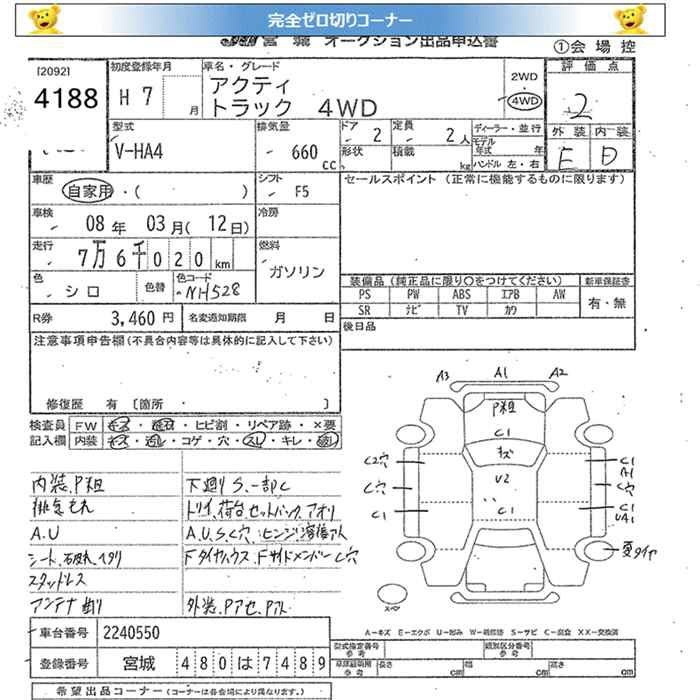 完全ゼロ切りコーナー
宮城 オークション出品申込書
①会場控
[2092]
4188
初度登録年月
H 7 月
車名・グレード
アクティ
トラック 4WD
2WD
4WD
評価点
2
外装 内装
E D
型式
V-HA4
排気量
660 cc
ドア 2
定員 2人
形状
積載 kg
ディーラー・並行
モデル年式 年
ハンドル 左・右
車歴
自家用・( )
シフト F5
セールスポイント (正常に機能するものに限ります)
車検
08年 03月(12日)
冷房
走行
7万6千020km
燃料
ガソリン
色
シロ
色替
色コード
NH528
装備品(純正品に限り○をつけてください)
新車保証書
PS PW ABS エアB AW
有・無
SR ナビ TV カワ
R券 3,460円
名変通知期限 月 日
後日品
注意事項申告欄(不具合内容等は具体的に記入して下さい)
修復歴 有 〔箇所 ・ 〕
検査員
記入欄
FW キズ・飛石・ヒビ割・リペア跡・×要
内装 キズ・汚れ・コゲ・穴・スレ・キレ・破れ
内装、P粗
排気もれ
A.U
シート、破れ、ヘタリ
スタッドレス
アンテナ曲り
下廻りS、一部C
トリイ、荷台セットバック、アオリ
A、U、S、C穴、ヒンジ溶接アト
Fタイヤハウス、FサイドメンバーC穴
外装、Pアセ、Pアト
A3 A1 A2
P粗
C1
キズ
U2
C1
C2穴
C穴
C1
C1
A1
C穴
C1
UA1
夏タイヤ
スペア
A－キズ E－エクボ U－凹み W－補修跡 S－サビ C－腐食 XX－交換済
車台番号 2240550
登録番号 宮城 480は7489
型式指定番号
参考
類別区分番号
参考
長さ cm 幅 cm 高さ cm
希望出品コーナー(コーナーは各会場により異なります。)